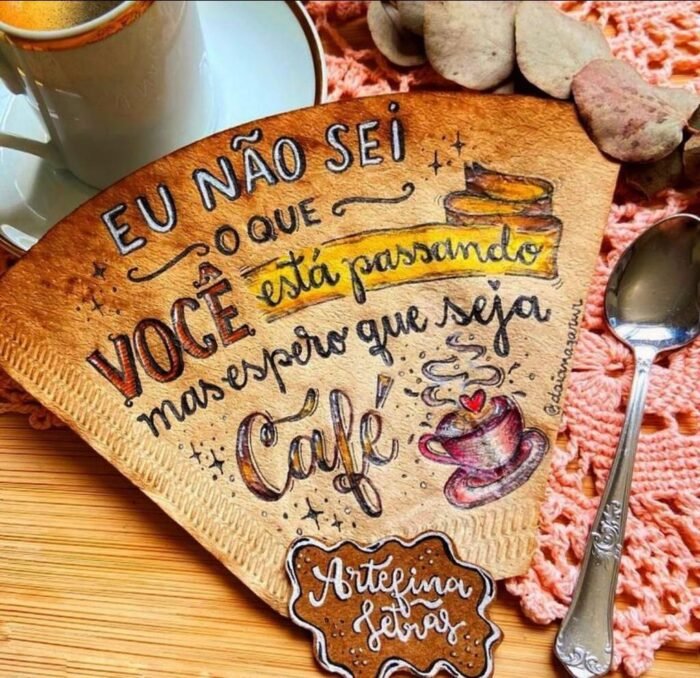 EU NÃO SEI
O QUE
VOCÊ está passando
mas espero que seja
Café
@daianazerwr
Artefina
Letras